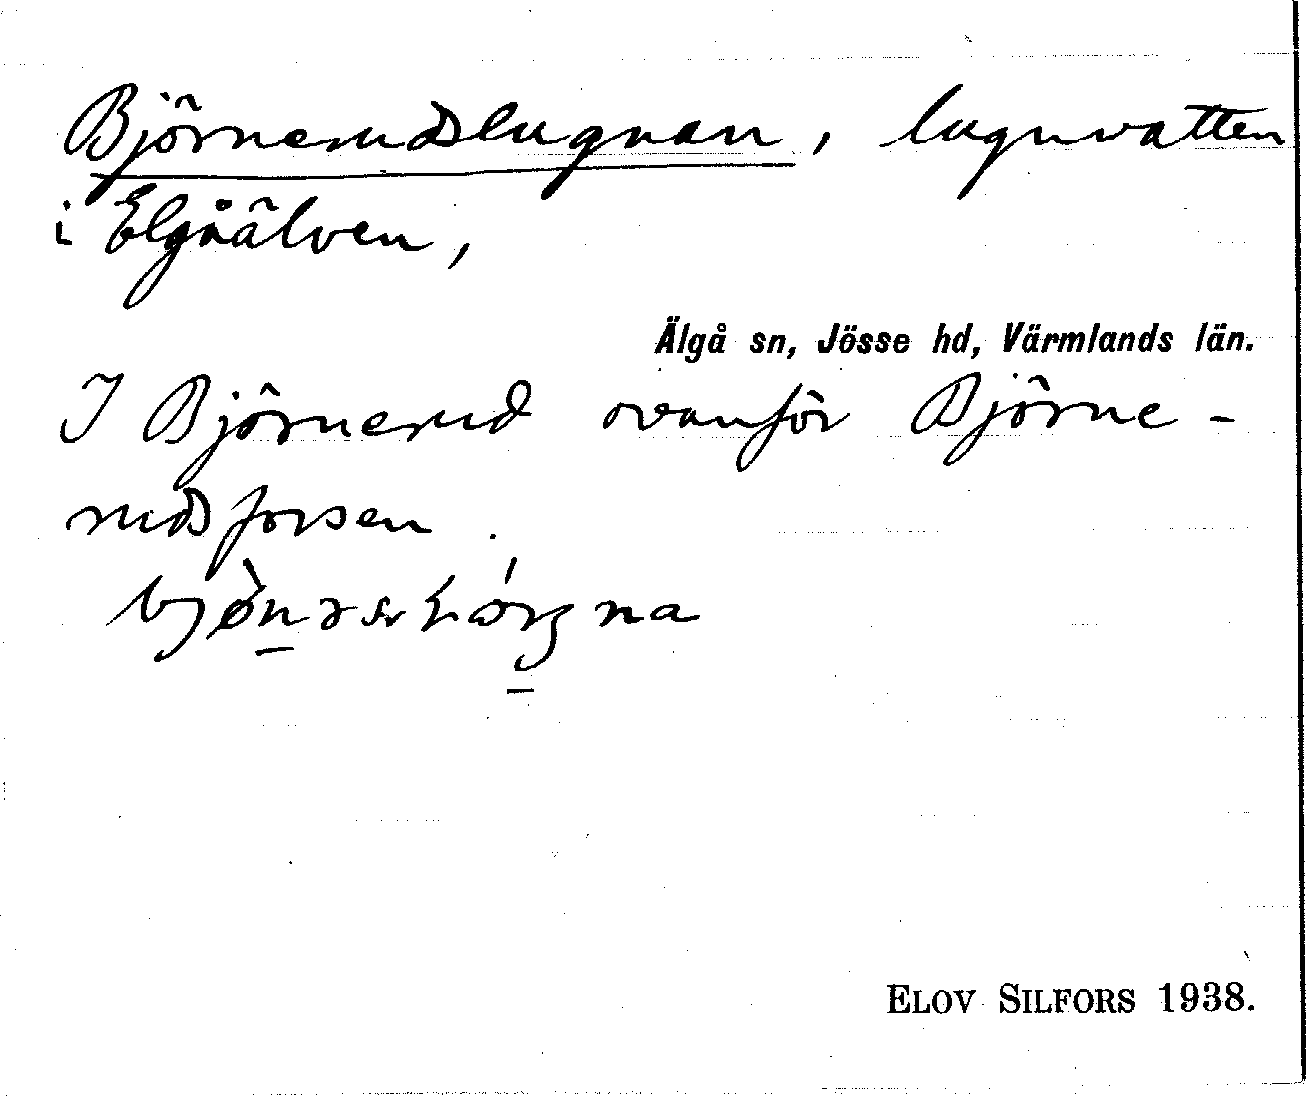 Björnerudslugnan, lugnvatten
i Elgåälven,
Älgå sn, Jösse hd, Värmlands län.
I Björnerud ovanför Björne-
rudsforsen.
ELOV SILFORS 1938.